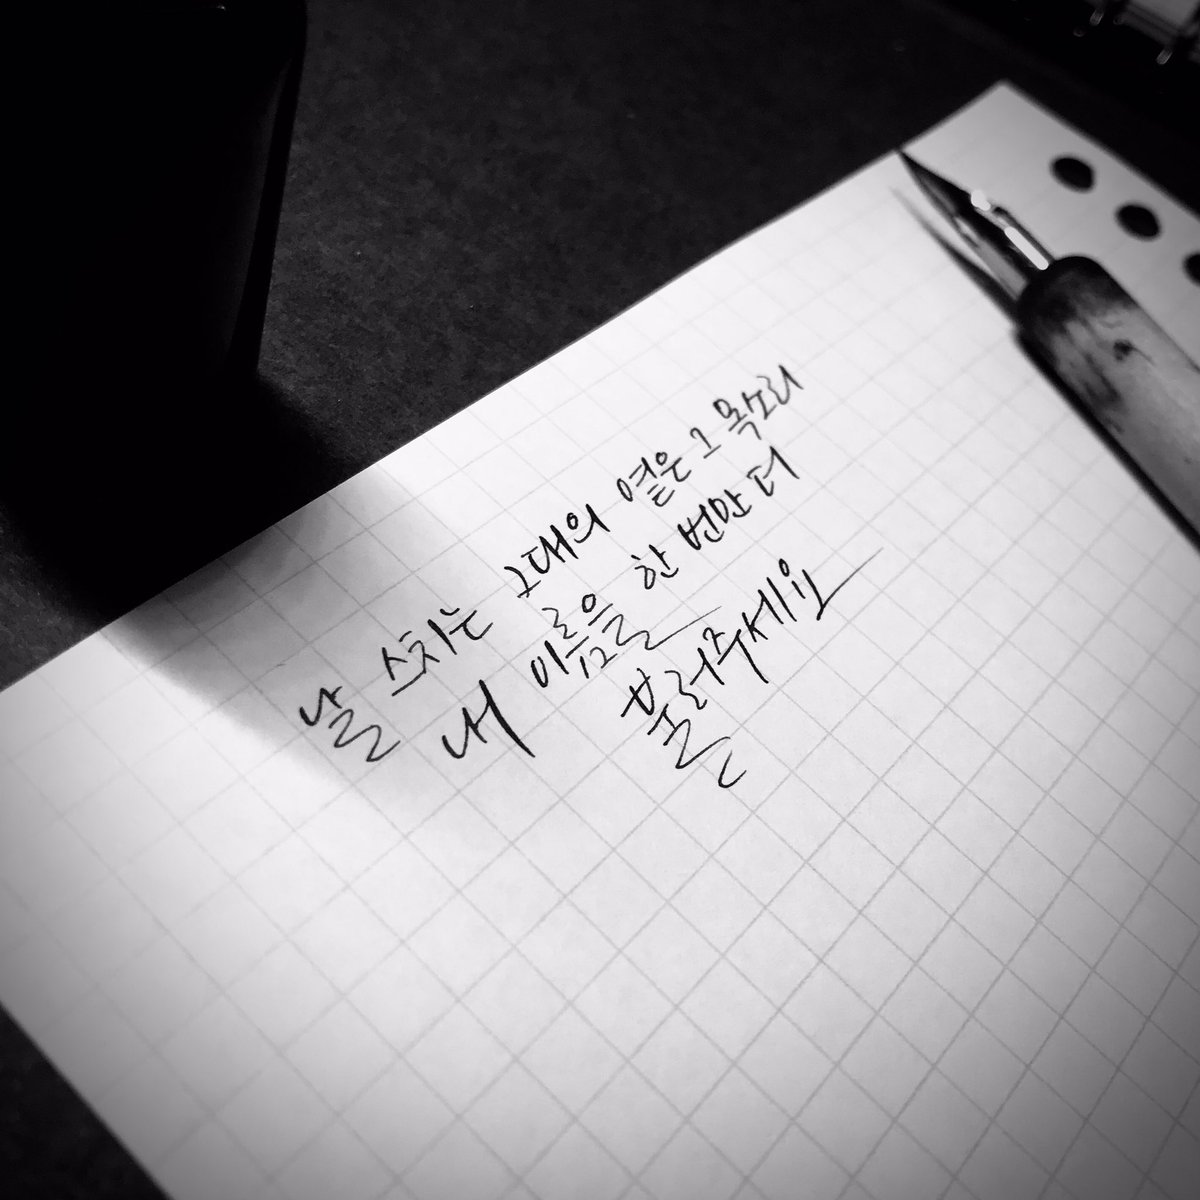 날 스치는 그대의 옅은 그 목소리
내 이름을 한 번만 더
불러주세요